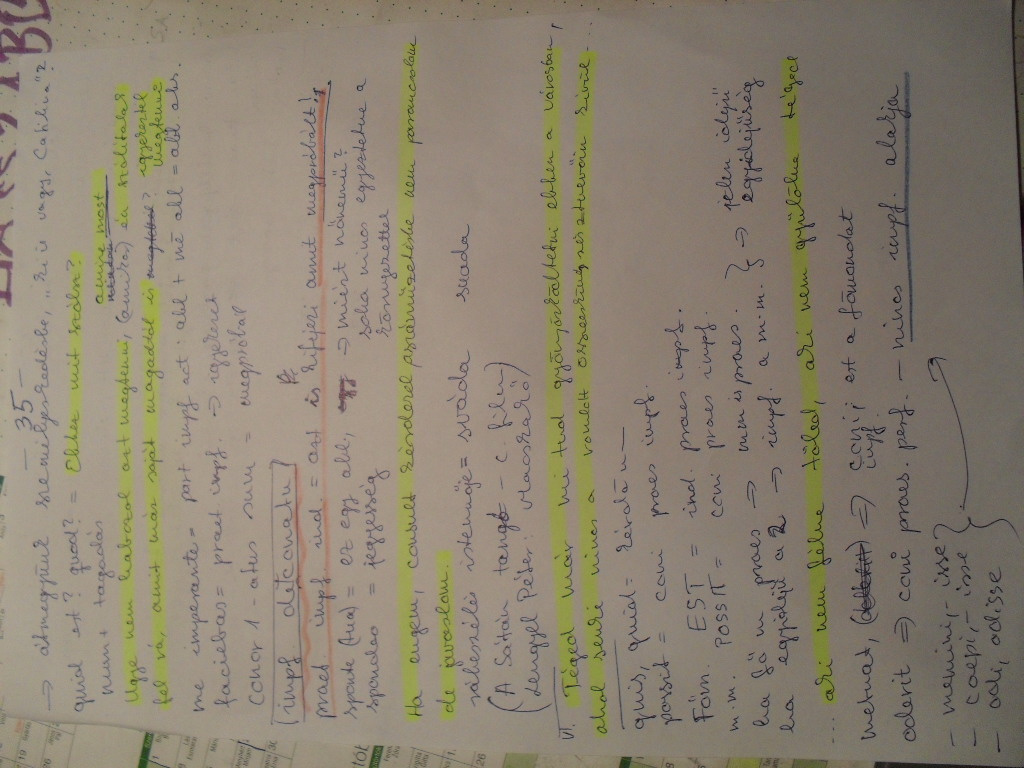 — 35 —
→ átmegyünk személyeskedésbe, "Te is vagy, Catilina" 2
quid est? quid? = Ehhez mit szólsz?
num + tagadás
Ugye nem haboznál azt megtenni, (amire) én szólítalak
amire most
fel rá, amit már saját magadtól is megtenni
me imperante = part impf act. abl + mé abl = abl. abs.
faciebas = praet impf. ⇒ igyekezet
conor 1 - atus sum = megpróbál
impf de conatu
praet impf ind. = azt is kifejezi amit megpróbált!
sponte (tua) = ez egy abl, → miért nőnemű?
spondeo = jegyesség
soha nincs egyeztetve a környezettel
Ha engem, consult kérdezel száműzetésbe nem parancsolom
de javaslom.
rábeszélés istennője = svada suada
(A Sátán tangó - c. film)
(Lengyel Péter: Macskakő)
VI. Téged már mi tud gyönyörködtetni ebben a városban,
ahol senki nincs a romlott összeesküvés résztvevőin kívül...
quis, quid = kérdőn
possit = coni praes impf.
Főm. EST = ind. praes impf.
m.m. POSSIT = coni praes impf.
ha fő m praes ⇒ mm is praes. } → jelen idejű egyidejűség
ha egyidejű a 2 ⇒ impf. a m.m.
... aki nem félne tőled, aki nem gyűlölne téged
metuat, ⇒ coni impf; est a főmondat
oderit ⇒ coni praes. perf. - nincs impf. alakja
- memini, - isse
- coepi, - isse
- odi, odisse